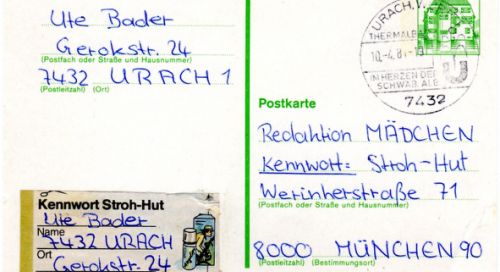 Ute Bader
Gerokstr. 24
(Postfach oder Straße und Hausnummer)
7432 URACH 1
(Postleitzahl) (Ort)
Kennwort Stroh-Hut
Ute Bader
Name
7432 URACH
Ort
Gerokstr. 24
URACH,
THERMALBA
10.-4.8
IM HERZEN DER
SCHWÄB. ALB
7432
Postkarte
Redaktion MÄDCHEN
Kennwort: Stroh-Hut
Werinherstraße 71
(Postfach oder Straße und Hausnummer)
8000 MÜNCHEN 90
(Postleitzahl) (Bestimmungsort)